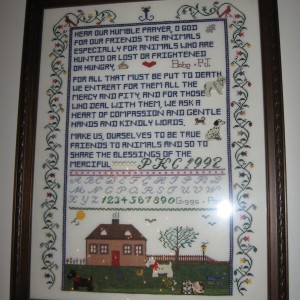 HEAR OUR HUMBLE PRAYER, O GOD
FOR OUR FRIENDS THE ANIMALS
ESPECIALLY FOR ANIMALS WHO ARE
HUNTED OR LOST OR FRIGHTENED
OR HUNGRY.
FOR ALL THAT MUST BE PUT TO DEATH
WE ENTREAT FOR THEM ALL THE
MERCY AND PITY, AND FOR THOSE
WHO DEAL WITH THEM, WE ASK A
HEART OF COMPASSION AND GENTLE
HANDS AND KINDLY WORDS.
MAKE US, OURSELVES TO BE TRUE
FRIENDS TO ANIMALS AND SO TO
SHARE THE BLESSINGS OF THE
MERCIFUL P.K.C. 1992
X Y Z 1234567890